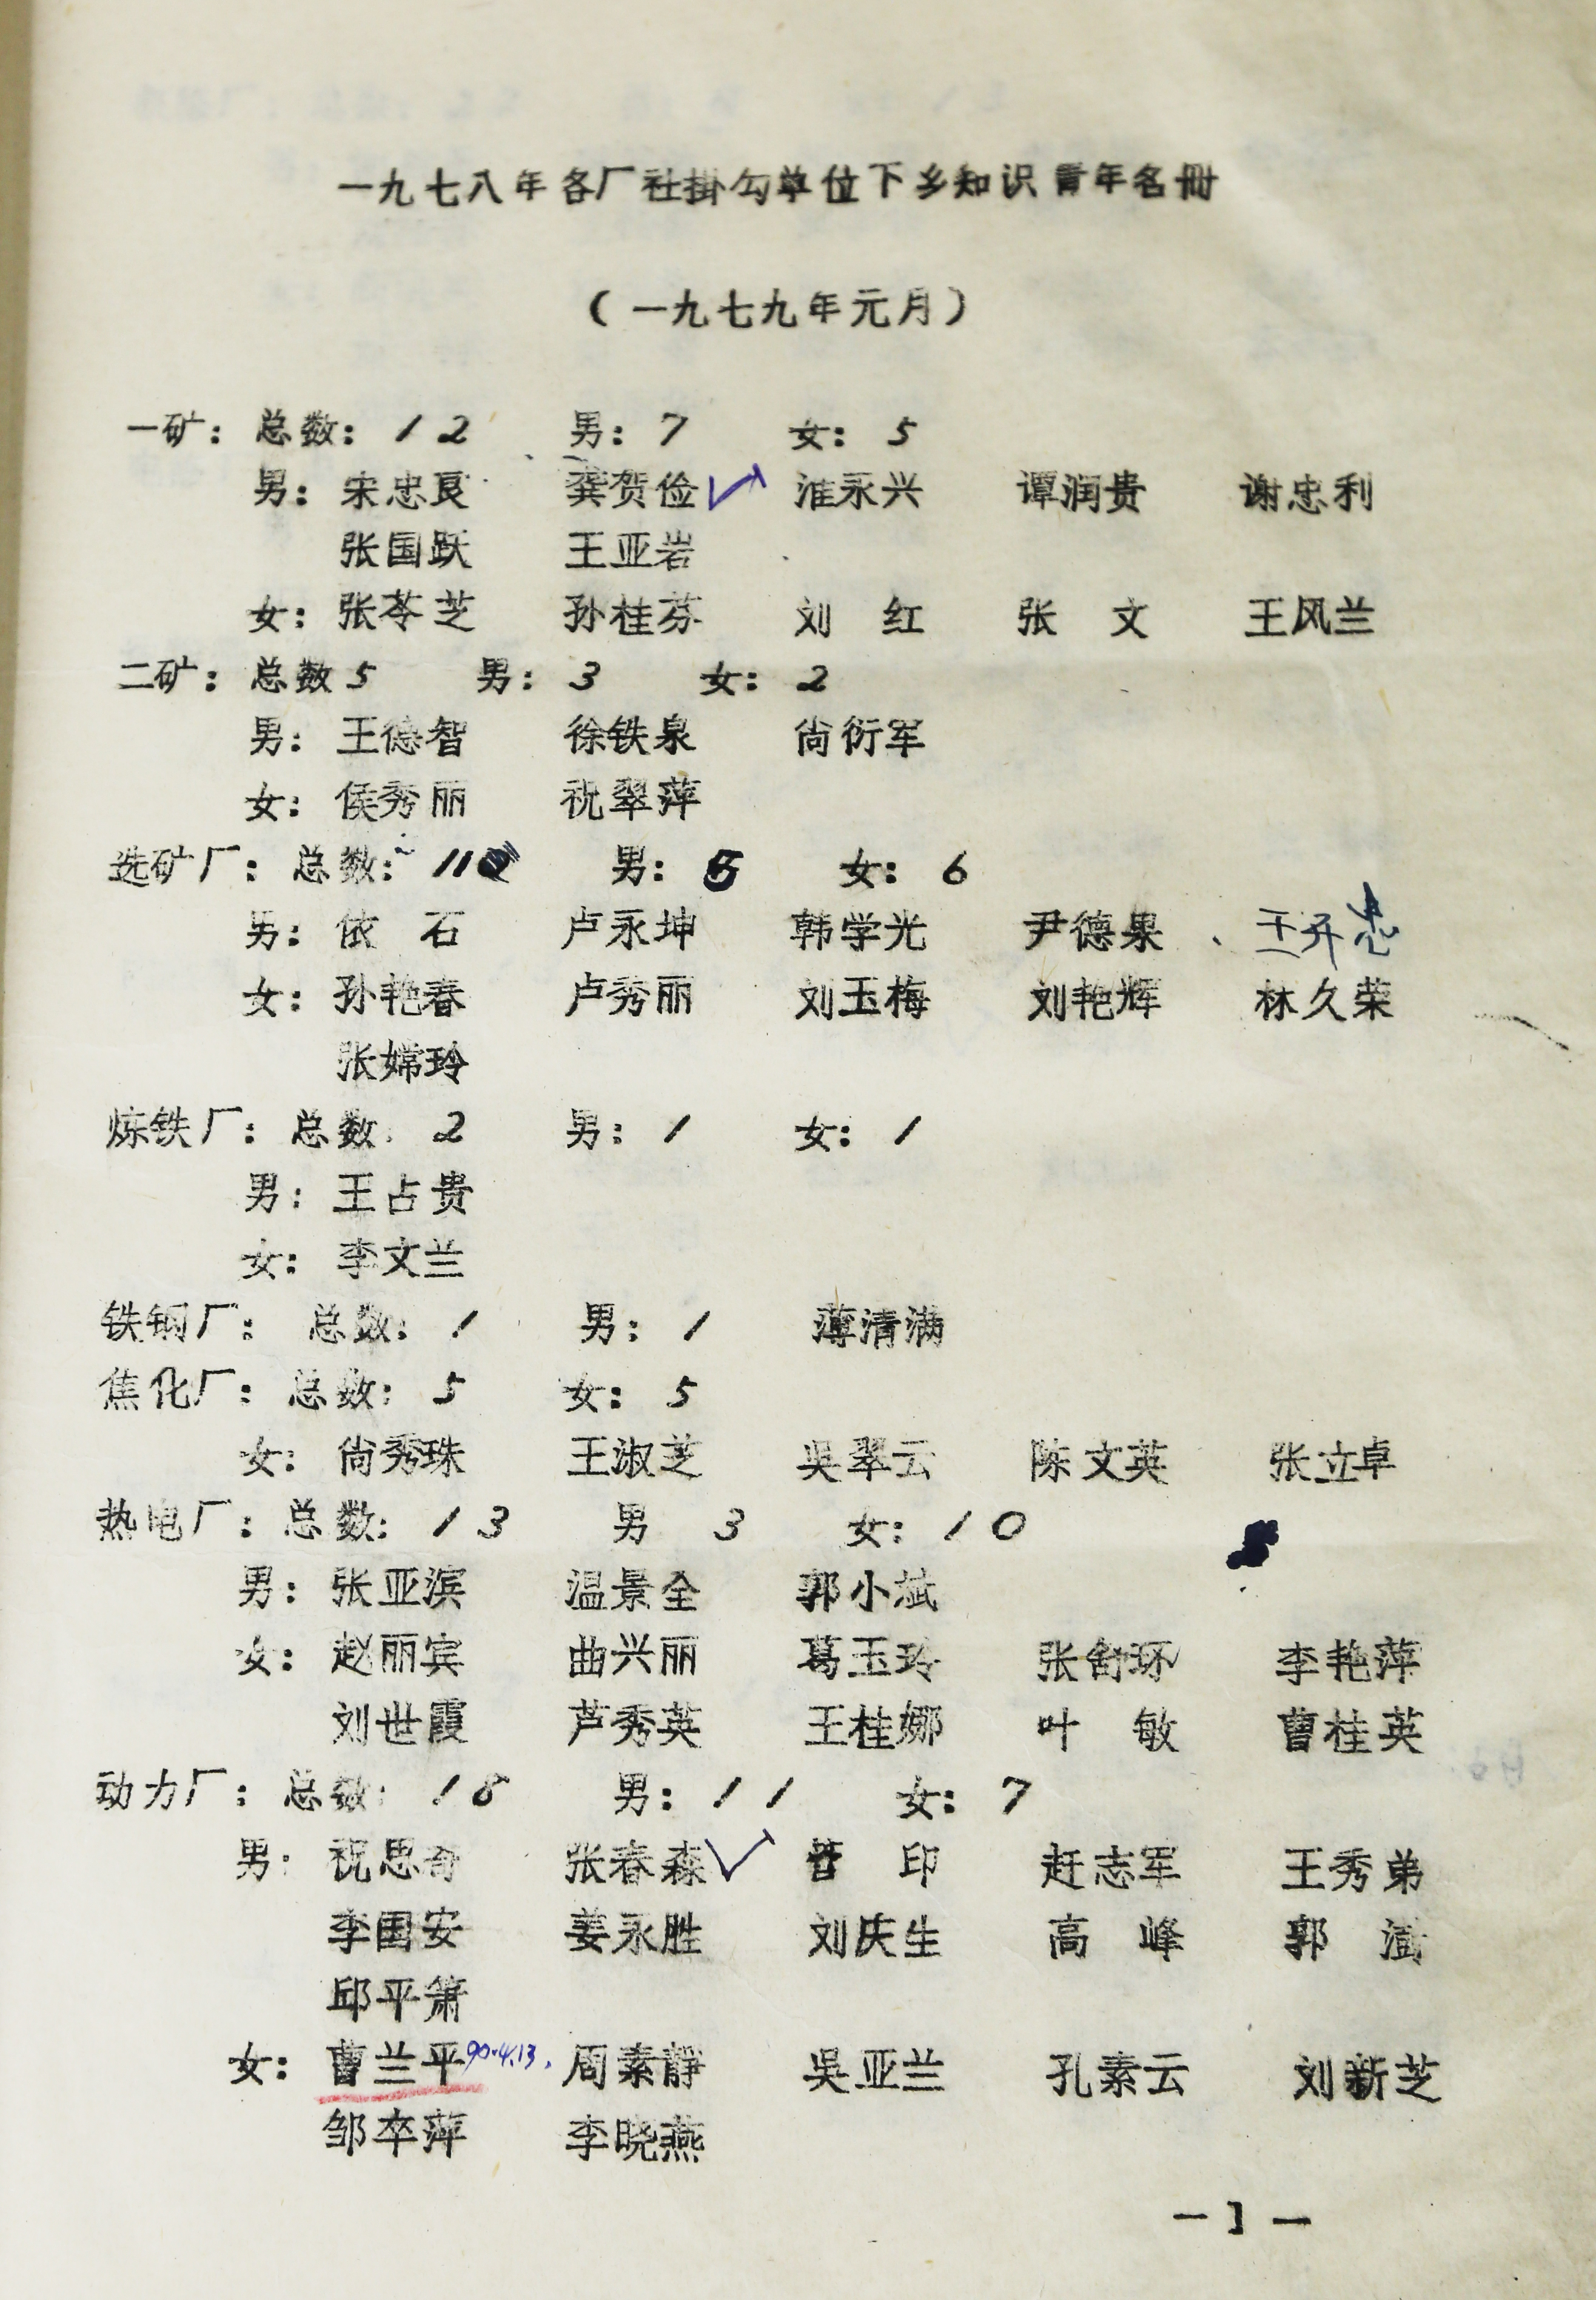 一九七八年各厂社掛勾单位下乡知识青年名册
（一九七九年元月）
一矿：总数：12 男：7 女：5
男：宋忠良 龚贺俭 淮永兴 谭润贵 谢忠利
张国跃 王亚岩
女：张苓芝 孙桂芬 刘 红 张 文 王风兰
二矿：总数5 男：3 女：2
男：王德智 徐铁泉 尚衍军
女：侯秀丽 祝翠萍
选矿厂：总数：11 男：5 女：6
男：依 石 卢永坤 韩学光 尹德果 王开忠
女：孙艳春 卢秀丽 刘玉梅 刘艳辉 林久荣
张嫦玲
炼铁厂：总数：2 男：1 女：1
男：王占贵
女：李文兰
铁钢厂：总数：1 男：1 薄清满
焦化厂：总数：5 女：5
女：尚秀珠 王淑芝 吴翠云 陈文英 张立卓
热电厂：总数：13 男 3 女：10
男：张亚滨 温景全 郭小斌
女：赵丽宾 曲兴丽 葛玉玲 张舒环 李艳萍
刘世霞 芦秀英 王桂娜 叶 敏 曹桂英
动力厂：总数：18 男：11 女：7
男：祝思奇 张春森 印 赶志军 王秀弟
李国安 姜永胜 刘庆生 高 峰 郭
邱平箫
女：曹兰平 90.4.13. 周素静 吴亚兰 孔素云 刘新芝
邹卒萍 李晓燕
—1—